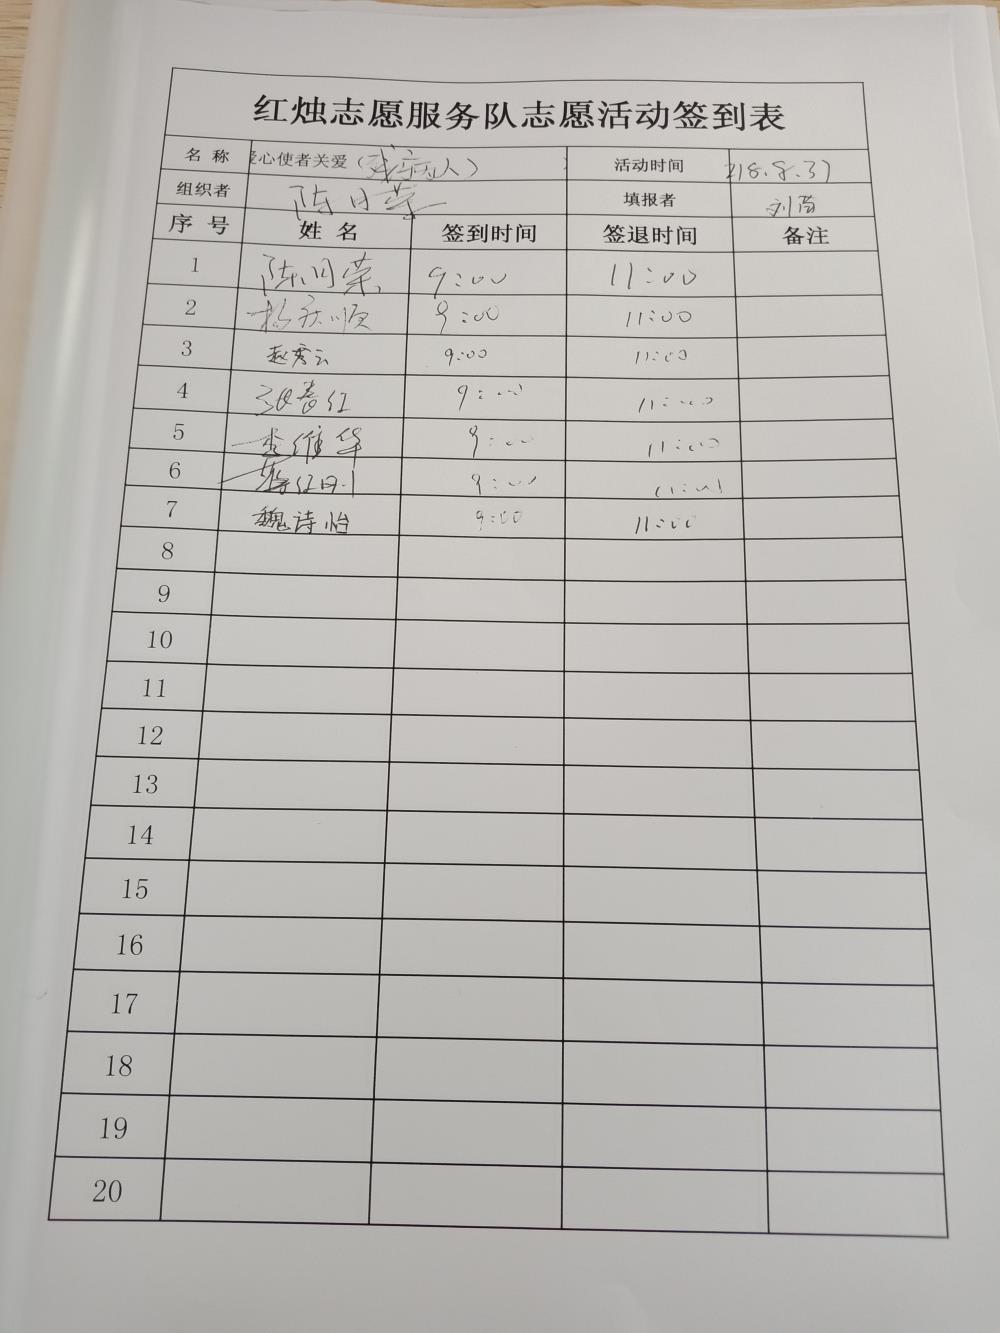 红烛志愿服务队志愿活动签到表
名 称 爱心使者关爱( 人) 活动时间 18.8.37
组织者 陈月荣 填报者 刘茵
序 号 姓 名 签到时间 签退时间 备注
1 陈月荣 9:00 11:00
2 杨庆顺 9:00 11:00
3 赵秀云 9:00 11:00
4 张春红 9:00 11:00
5 李维华 9:00 11:00
6 9:00 11:00
7 魏诗怡 9:00 11:00
8
9
10
11
12
13
14
15
16
17
18
19
20